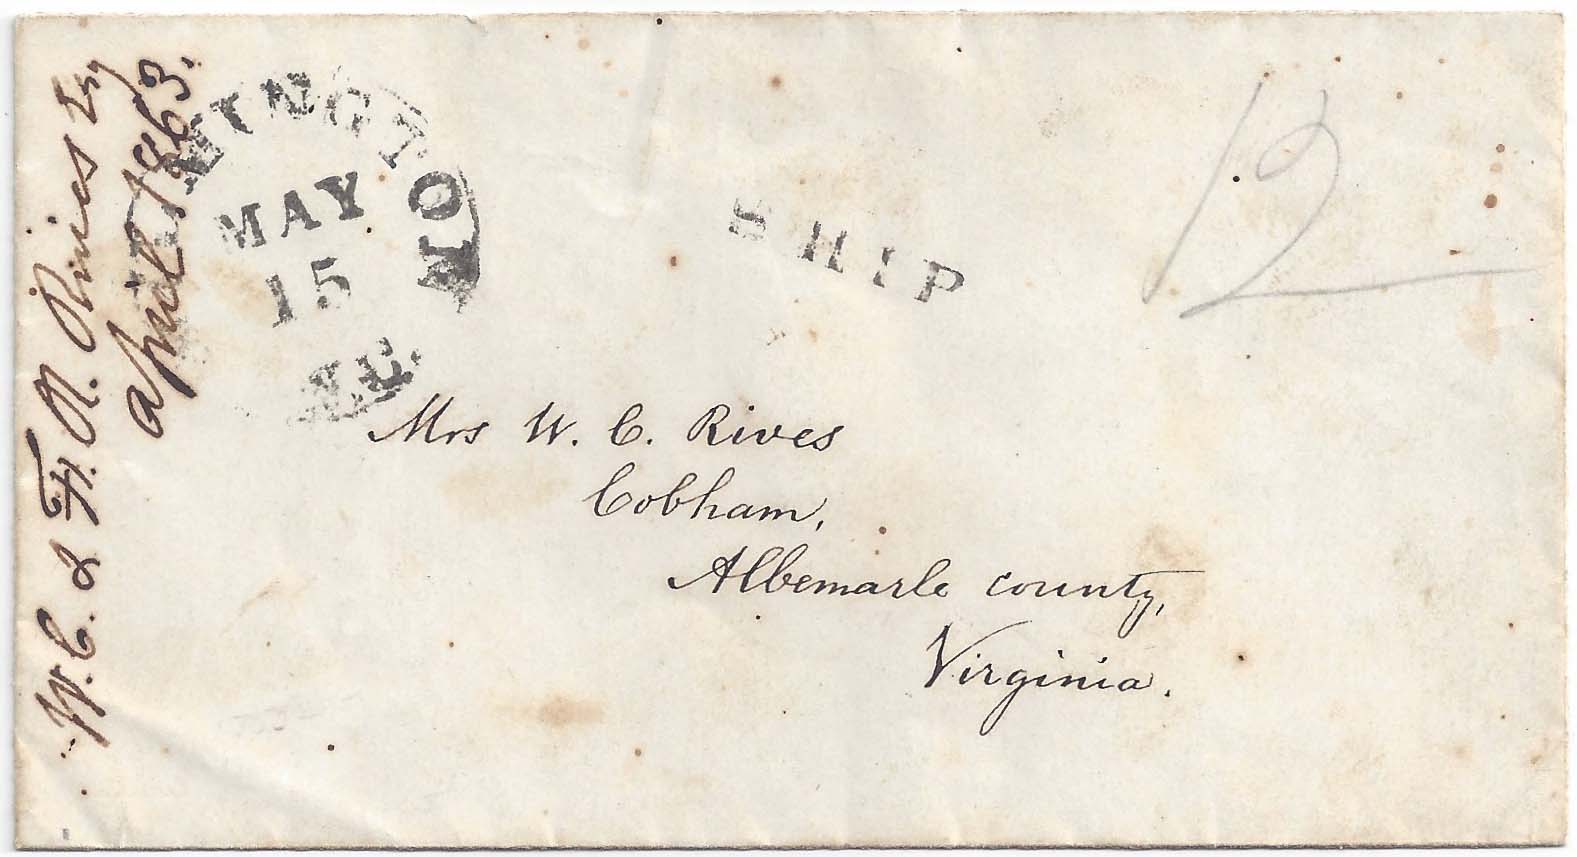 W. C. & F. R. Rives Esq
April 1863.
WILMINGTON
MAY
15
N.C.
SHIP
12
Mrs W. C. Rives
Cobham,
Albemarle county,
Virginia.